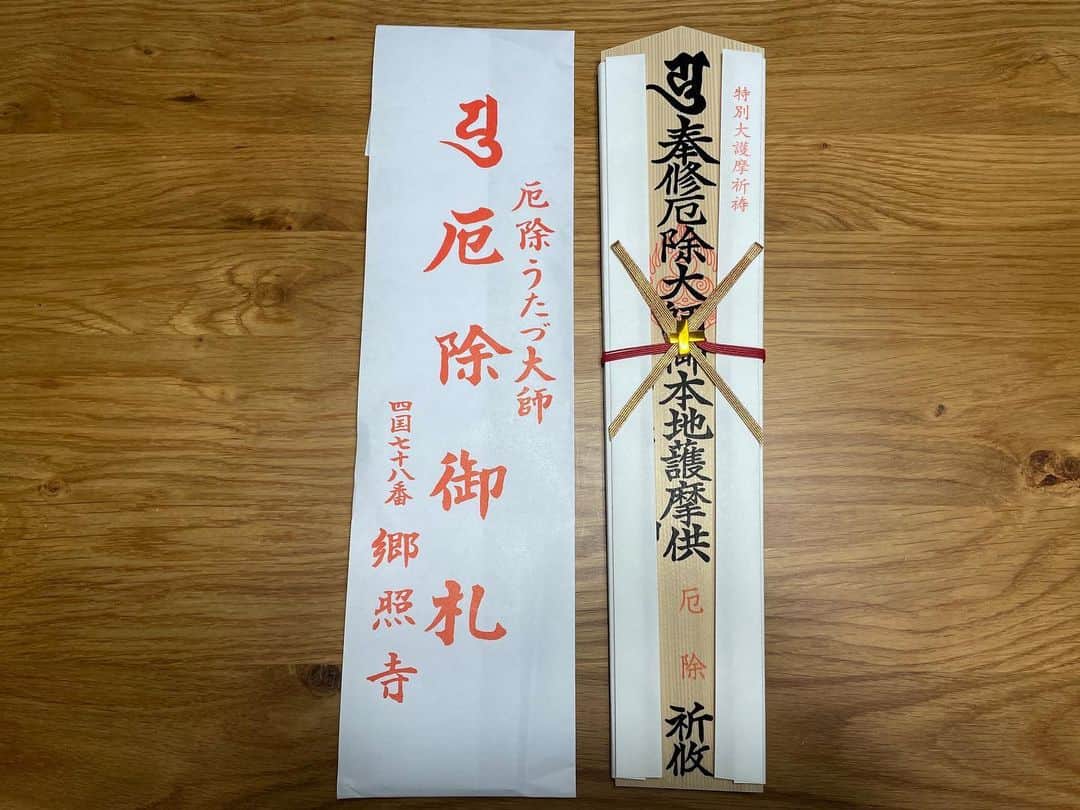 厄除うたづ大師
厄除御札
四国七十八番 郷照寺
特別大護摩祈祷
奉修厄除大師御本地護摩供
厄除
祈攸